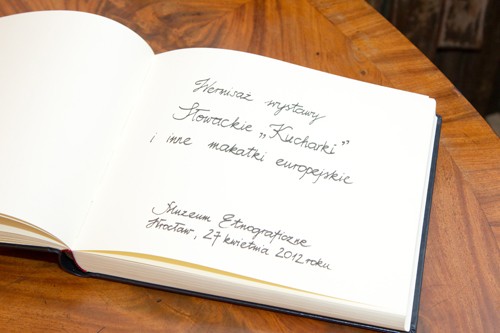 Wernisaż wystawy
Słowackie „Kucharki”
i inne makatki europejskie
Muzeum Etnograficzne
Wrocław, 27 kwietnia 2012 roku